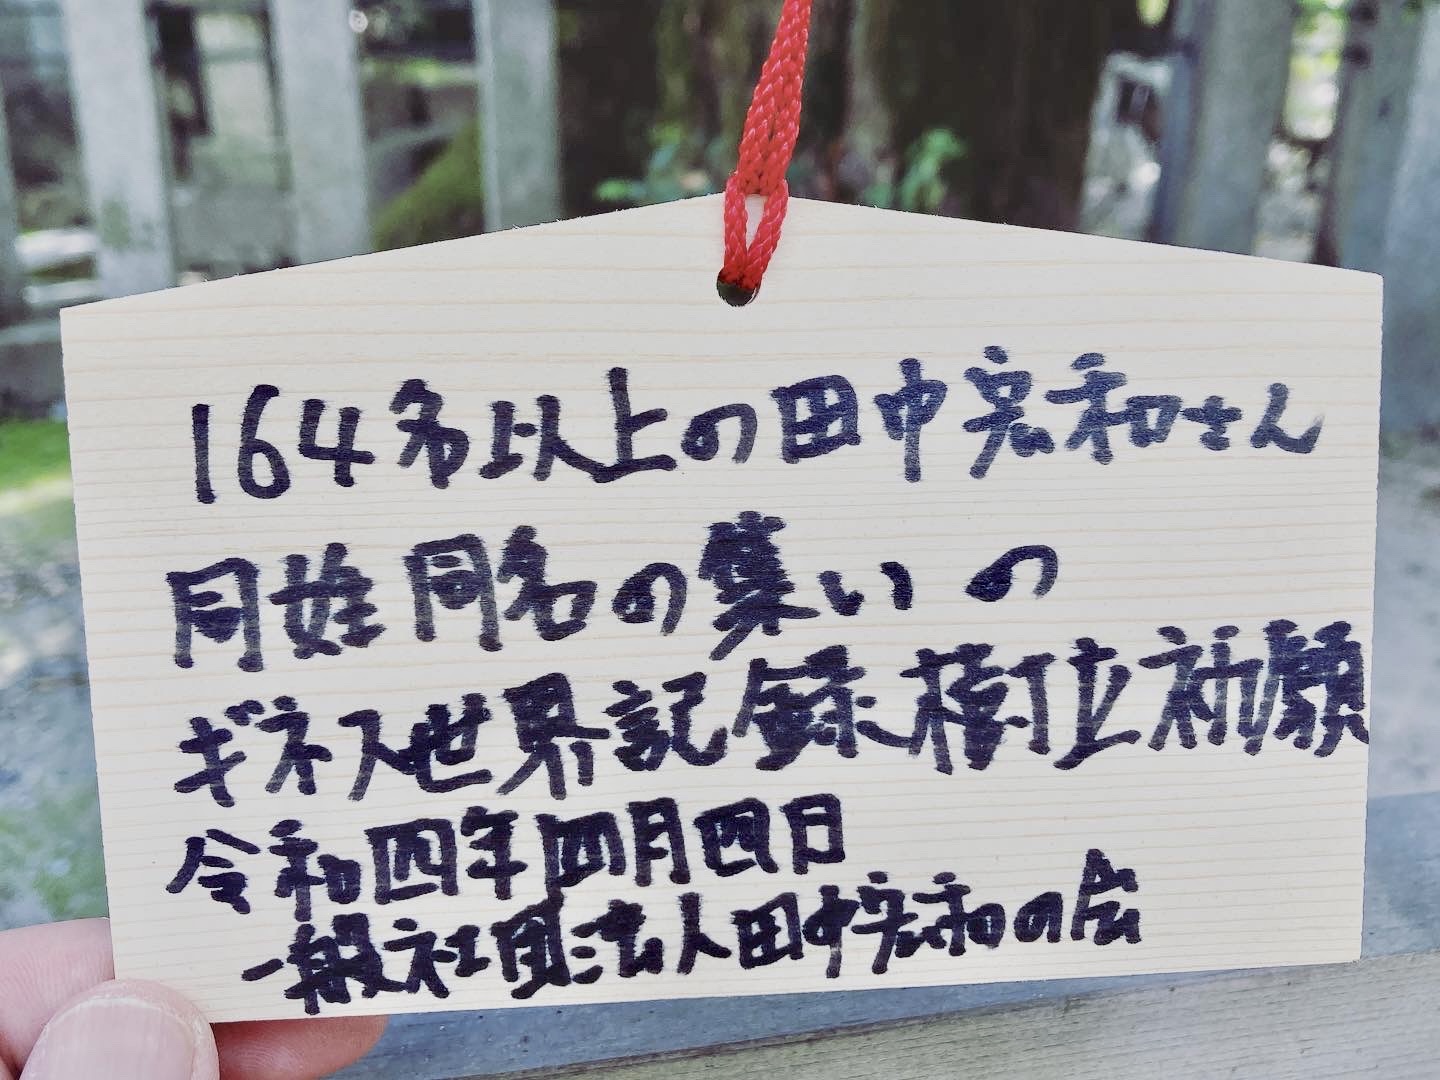 164名以上の田中宏和さん
同姓同名の集いの
ギネス世界記録樹立祈願
令和四年四月四日
一般社団法人田中宏和の会